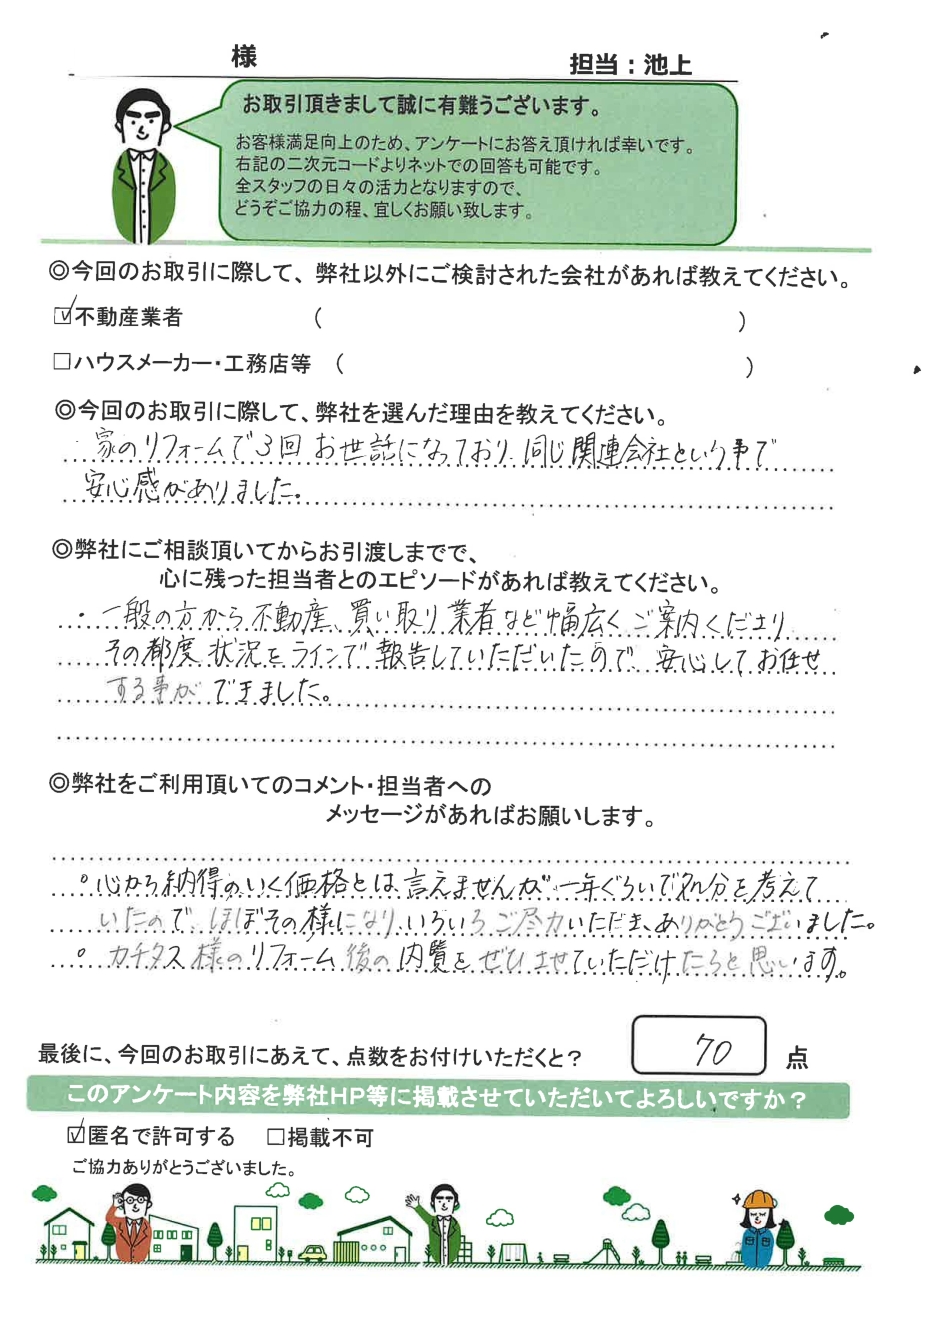 様
担当：池上
お取引頂きまして誠に有難うございます。
お客様満足向上のため、アンケートにお答え頂ければ幸いです。
右記の二次元コードよりネットでの回答も可能です。
全スタッフの日々の活力となりますので、
どうぞご協力の程、宜しくお願い致します。
◎今回のお取引に際して、弊社以外にご検討された会社があれば教えてください。
☑不動産業者 （ ）
□ハウスメーカー・工務店等 （ ）
◎今回のお取引に際して、弊社を選んだ理由を教えてください。
・家のリフォームで3回お世話になっており、同じ関連会社という事で
安心感がありました。
◎弊社にご相談頂いてからお引渡しまでで、
心に残った担当者とのエピソードがあれば教えてください。
・一般の方から不動産、買い取り業者など幅広くご案内くださり
その都度状況をラインで報告していただいたので、安心してお任せ
する事ができました。
◎弊社をご利用頂いてのコメント・担当者への
メッセージがあればお願いします。
。心から納得のいく価格とは言えませんが、一年ぐらいで処分を考えて
いたので、ほぼその様になり、いろいろご尽力いただき、ありがとうございました。
。カチタス様のリフォーム後の内覧をぜひさせていただけたらと思います。
最後に、今回のお取引にあえて、点数をお付けいただくと？ 70 点
このアンケート内容を弊社HP等に掲載させていただいてよろしいですか？
☑匿名で許可する □掲載不可
ご協力ありがとうございました。